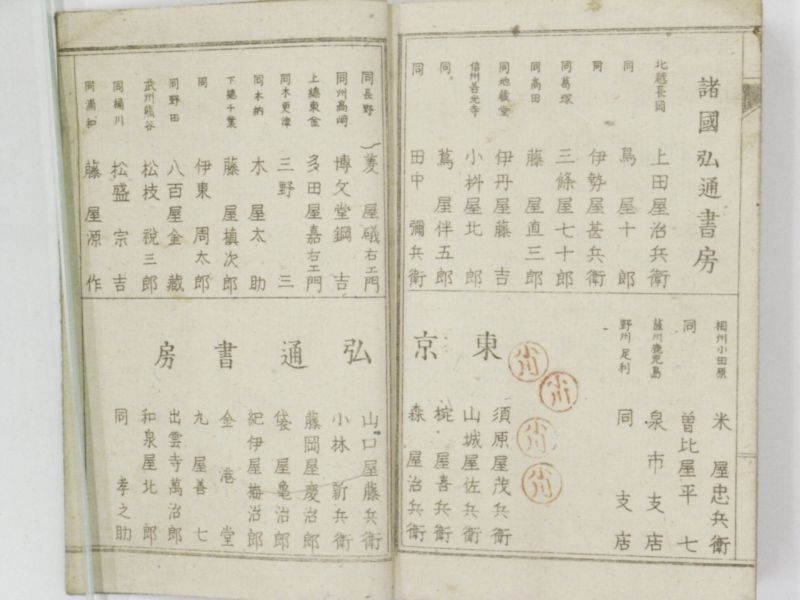 諸國弘通書房
北越長岡 上田屋治兵衛
同 蔦屋十郎
同 伊勢屋甚兵衛
同葛塚 三條屋七十郎
同高田 藤屋直三郎
同地蔵堂 伊丹屋藤吉
信州善光寺 小枡屋北郎
同 蔦屋伴五郎
同 田中彌兵衛
同長野 菱屋礒右エ門
同州高崎 博文堂鋼吉
上總東金 多田屋嘉右エ門
同木更津 三野三
同本納 木屋太助
下總千葉 藤屋槙次郎
同 伊東周太郎
同野田 八百屋金藏
武州熊谷 松枝税三郎
同桶川 松盛宗吉
同浦和 藤屋源作
相州小田原 米屋忠兵衛
同 曽比屋平七
薩州鹿児島 泉市支店
野州足利 同支店
東京弘通書房
須原屋茂兵衛
山城屋佐兵衛
椗屋喜兵衛
森屋治兵衛
山口屋藤兵衛
小林新兵衛
藤岡屋慶治郎
袋屋亀治郎
紀伊屋梅治郎
金港堂
九屋善七
出雲寺萬治郎
和泉屋北郎
同孝之助